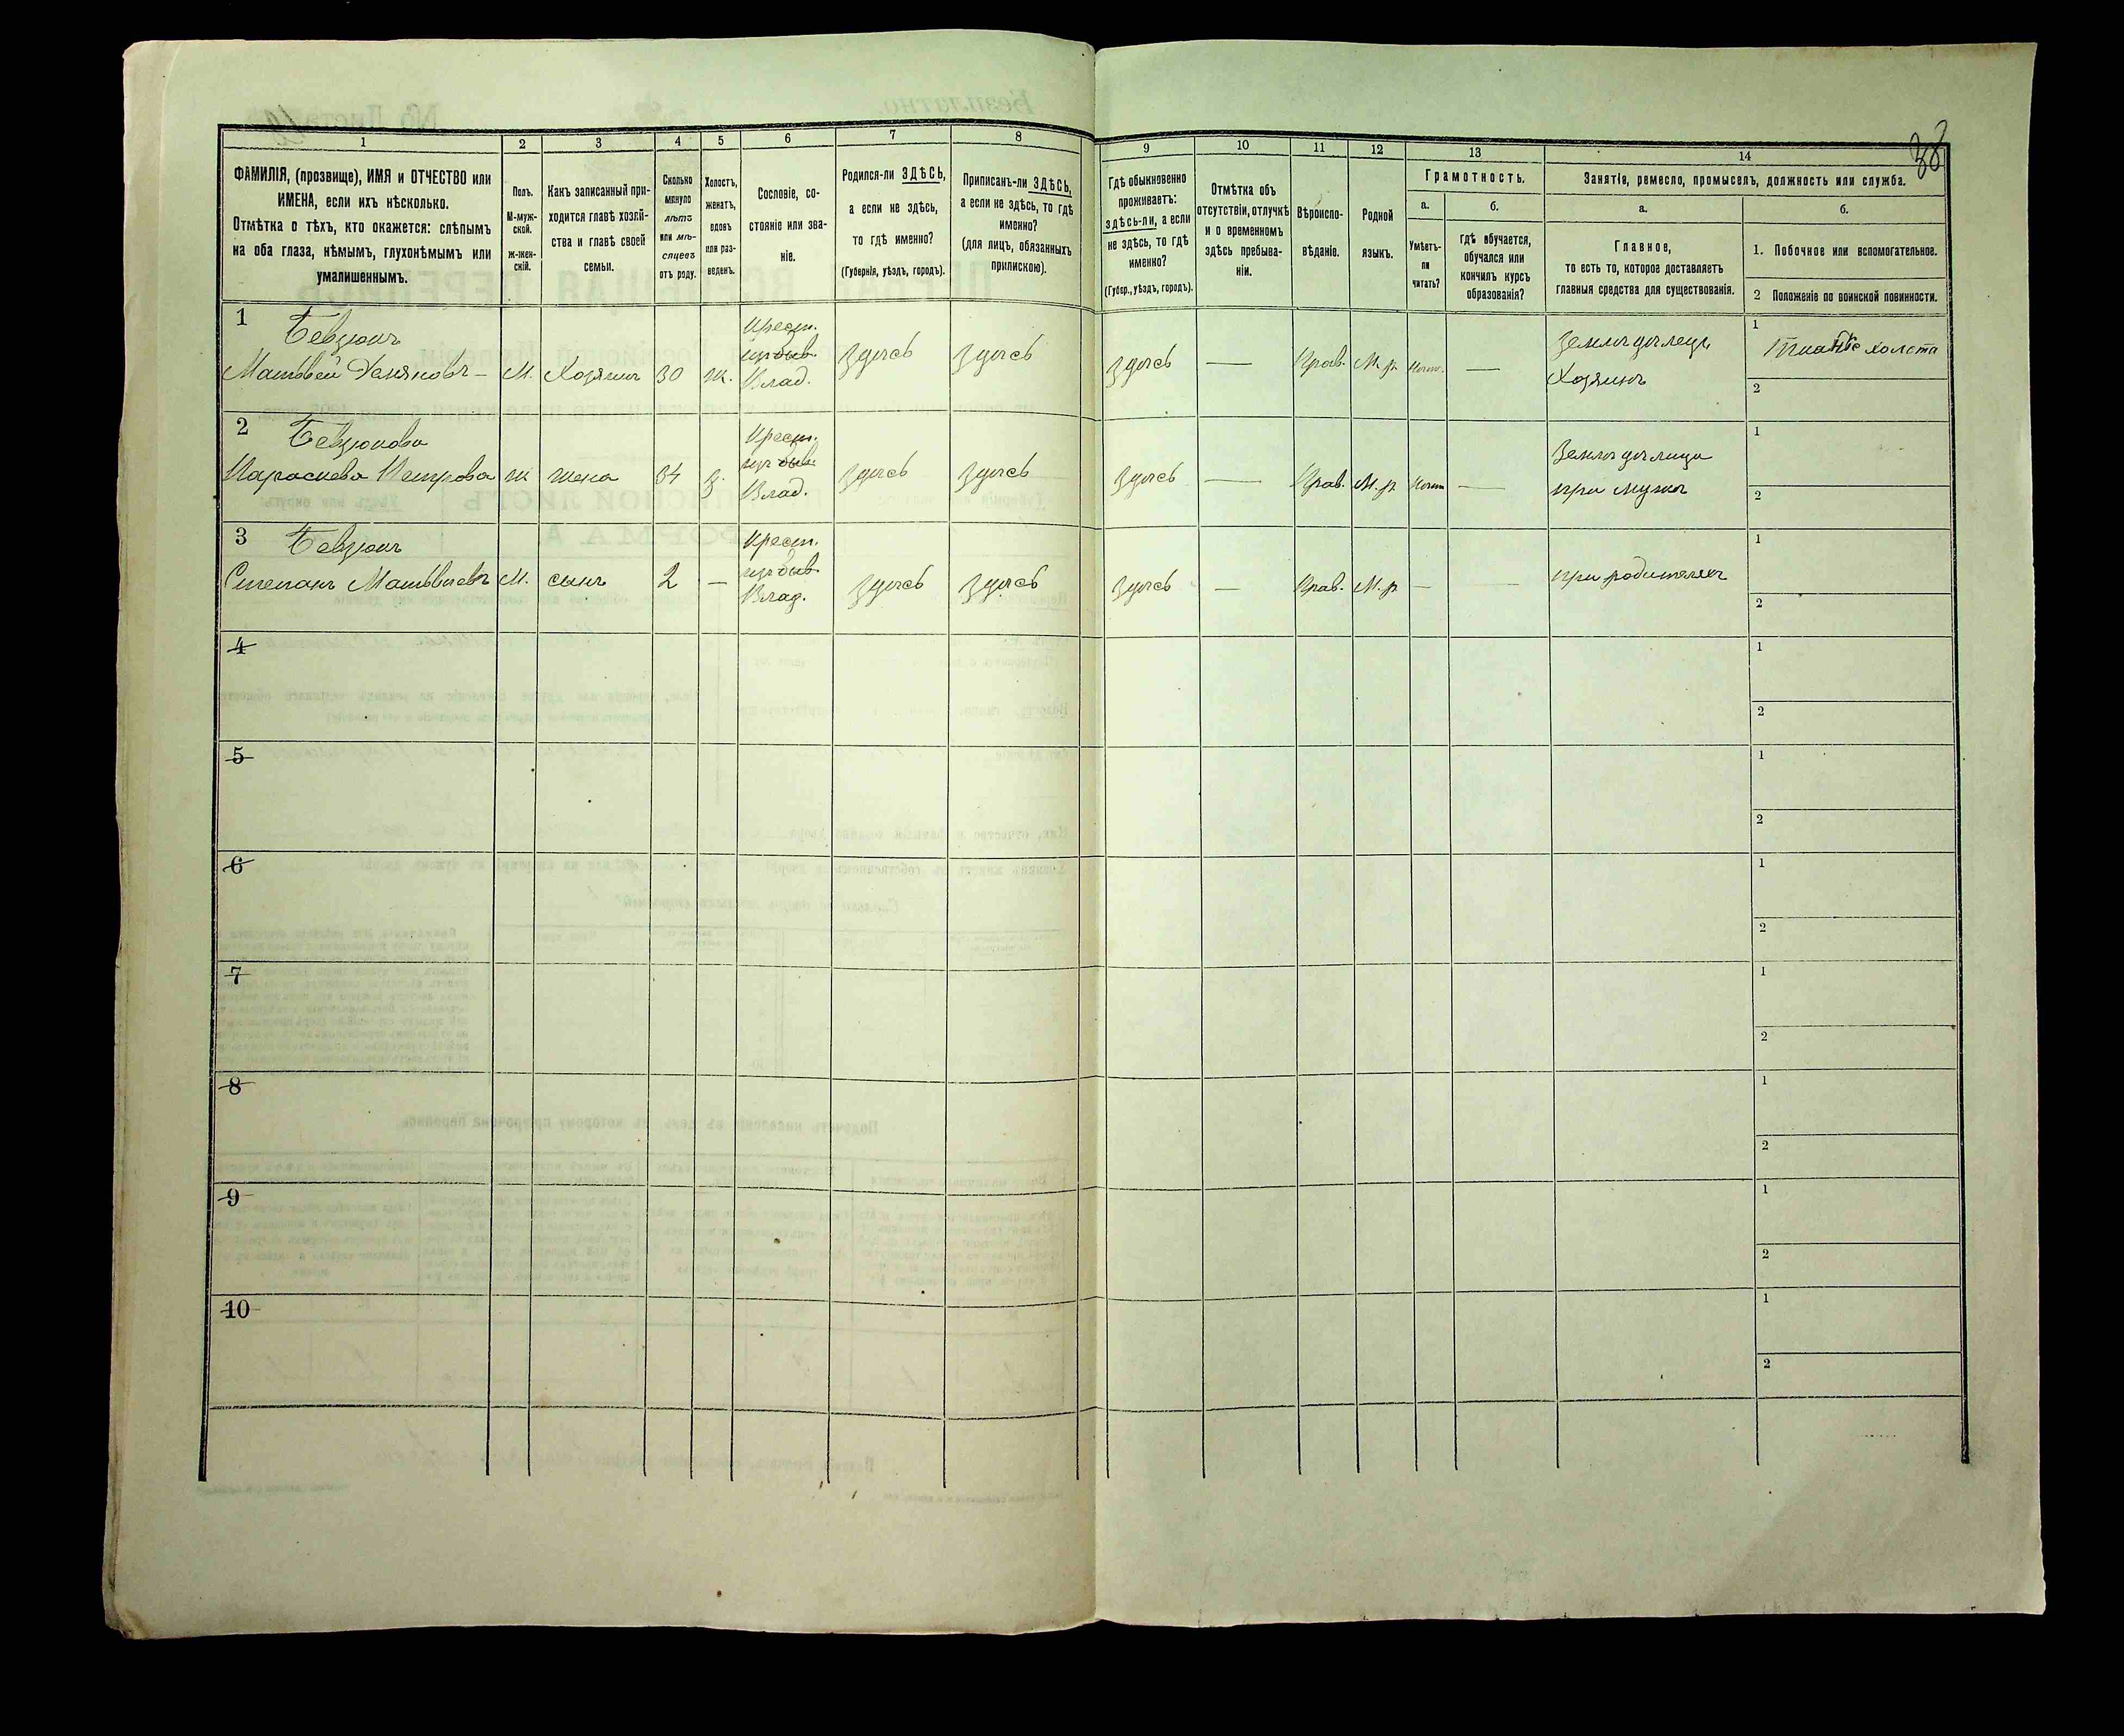 38
1
2
3
4
5
6
7
8
9
10
11
12
13
14
ФАМИЛІЯ, (прозвище), ИМЯ и ОТЧЕСТВО или
ИМЕНА, если ихъ нѣсколько.
Отмѣтка о тѣхъ, кто окажется: слѣпымъ
на оба глаза, нѣмымъ, глухонѣмымъ или
умалишеннымъ.
Полъ.
М-муж-
ской.
ж-жен-
скій.
Какъ записанный при-
ходится главѣ хозяй-
ства и главѣ своей
семьи.
Сколько
минуло
лѣтъ
или мѣ-
сяцевъ
отъ роду.
Холостъ,
женатъ,
вдовъ
или раз-
веденъ.
Сословіе, со-
стояніе или зва-
ніе.
Родился-ли ЗДѢСЬ,
а если не здѣсь,
то гдѣ именно?
(Губернія, уѣздъ, городъ).
Приписанъ-ли ЗДѢСЬ,
а если не здѣсь, то гдѣ
именно?
(для лицъ, обязанныхъ
припискою).
Гдѣ обыкновенно
проживаетъ:
здѣсь-ли, а если
не здѣсь, то гдѣ
именно?
(Губер., уѣздъ, городъ).
Отмѣтка объ
отсутствіи, отлучкѣ
и о временномъ
здѣсь пребыва-
ніи.
Вѣроиспо-
вѣданіе.
Родной
языкъ.
Грамотность.
а.
Умѣетъ-
ли
читать?
б.
гдѣ обучается,
обучался или
кончилъ курсъ
образованія?
Занятія, ремесло, промыселъ, должность или служба.
а.
Главное,
то есть то, которое доставляетъ
главныя средства для существованія.
б.
1. Побочное или вспомогательное.
2 Положеніе по воинской повинности.
1 Бевзюкъ Крест. Земледѣлецъ 1
изъ быв. Тканье холста
Матвѣй Демяновъ – М. Хозяинъ 30 ж. Влад. Здѣсь Здѣсь Здѣсь — Прав. М. р. — Хозяинъ
2
2 Бевзюкова Крест. Земледѣлица 1
изъ быв.
Параскева Петрова ж жена 34 з. Влад. Здѣсь Здѣсь Здѣсь — Прав. М. р. — при мужѣ 2
3 Бевзюкъ Крест. 1
изъ быв.
Степанъ Матвѣевъ М. сынъ 2 — Влад. Здѣсь Здѣсь Здѣсь — Прав. М. р. — — при родителяхъ
2
4 1
2
5 1
2
6 1
2
7 1
2
8 1
2
9 1
2
10 1
2